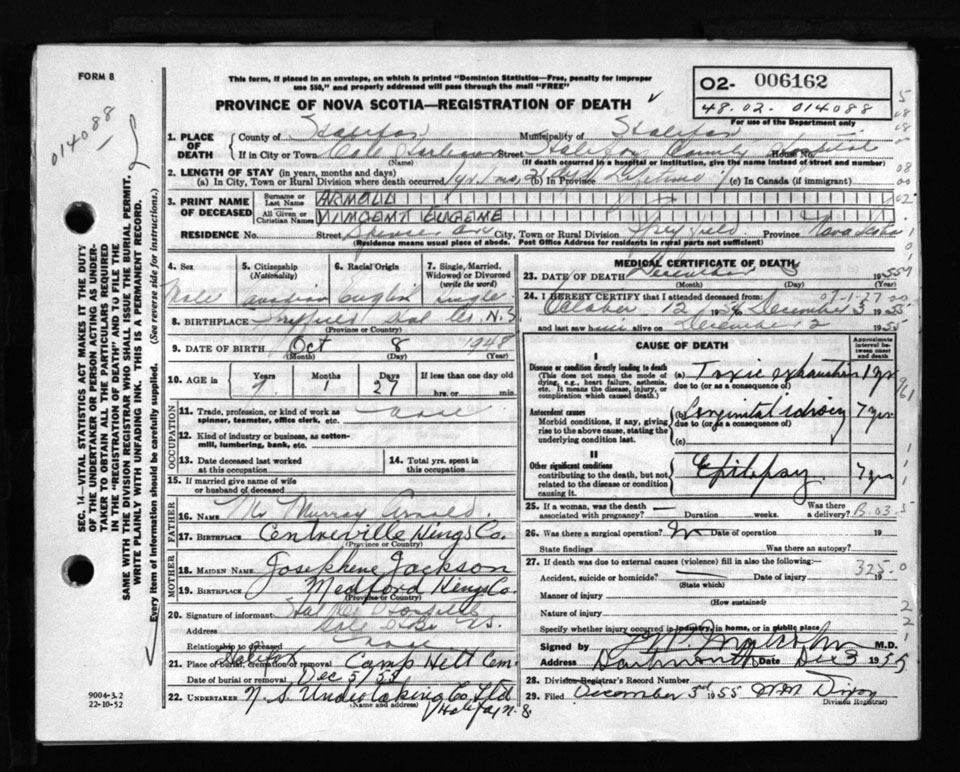 FORM 8
This form, if placed in an envelope, on which is printed "Dominion Statistics—Free, penalty for improper
use $50," and properly addressed will pass through the mail "FREE"
PROVINCE OF NOVA SCOTIA—REGISTRATION OF DEATH
02- 006162
48.02. 014088
For use of the Department only
014088
SEC. 14—VITAL STATISTICS ACT MAKES IT THE DUTY
OF THE UNDERTAKER OR PERSON ACTING AS UNDER-
TAKER TO OBTAIN ALL THE PARTICULARS REQUIRED
IN THE "REGISTRATION OF DEATH" AND TO FILE THE
SAME WITH THE DIVISION REGISTRAR WHO SHALL ISSUE THE BURIAL PERMIT.
WRITE PLAINLY WITH UNFADING INK. THIS IS A PERMANENT RECORD.
Every item of Information should be carefully supplied. (See reverse side for instructions.)
1. PLACE OF DEATH County of Halifax Municipality of Halifax
If in City or Town Cole Harbour Street Halifax County Hospital House No.
(Name) (If death occurred in a hospital or institution, give the name instead of street and number)
2. LENGTH OF STAY (in years, months and days)
(a) In City, Town or Rural Division where death occurred 1 yr. 1 mo. (b) In Province Lifetime (c) In Canada (if immigrant)
3. PRINT NAME OF DECEASED Surname or Last Name ARNOLD
All Given or Christian Names VINCENT EUGENE
RESIDENCE No. Street Spencer Ave City, Town or Rural Division Spryfield Province Nova Scotia
(Residence means usual place of abode. Post Office Address for residents in rural parts not sufficient)
4. Sex Male
5. Citizenship (Nationality) Canadian
6. Racial Origin English
7. Single, Married, Widowed or Divorced (write the word) Single
8. BIRTHPLACE Spryfield Hal Co. N.S
(Province or Country)
9. DATE OF BIRTH Oct 8 1948
(Month) (Day) (Year)
10. AGE in Years 7 Months 1 Days 27 If less than one day old
hrs. or min.
OCCUPATION
11. Trade, profession, or kind of work as spinner, teamster, office clerk, etc. none
12. Kind of industry or business, as cotton-mill, lumbering, bank, etc.
13. Date deceased last worked at this occupation
14. Total yrs. spent in this occupation
15. If married give name of wife or husband of deceased
FATHER
16. NAME Mr Murray Arnold
17. BIRTHPLACE Centreville Kings Co.
(Province or Country)
MOTHER
18. MAIDEN NAME Josephene Jackson
19. BIRTHPLACE Medford Kings Co.
(Province or Country)
20. Signature of informant Hal Co Hospital
Address Cole Hbr N.S.
Relationship to deceased none
21. Place of burial, cremation or removal Halifax Camp Hill Cem
Date of burial or removal Dec 5/55
22. UNDERTAKER N.S. Undertaking Co Ltd
(Name and address) Halifax N.S.
9004-3.2
22-10-52
MEDICAL CERTIFICATE OF DEATH
23. DATE OF DEATH December 3 1955
(Month) (Day)
24. I HEREBY CERTIFY that I attended deceased from: 07-1-27 00
October 12 1954 December 3 1955
and last saw alive on December 2 1955
CAUSE OF DEATH
Approximate interval between onset and death
I
Disease or condition directly leading to death
(This does not mean the mode of dying, e.g., heart failure, asthenia, etc. It means the disease, injury, or complication which caused death.)
(a) Toxic exhaustion 1 yr
due to (or as a consequence of)
Antecedent causes
Morbid conditions, if any, giving rise to the above cause, stating the underlying condition last.
(b) Congenital idiocy 7 yrs
due to (or as a consequence of)
(c)
II
Other significant conditions
contributing to the death, but not related to the disease or condition causing it.
Epilepsy 7 yrs
25. If a woman, was the death associated with pregnancy? — Duration weeks. Was there a delivery?
26. Was there a surgical operation? No Date of operation 19
State findings Was there an autopsy?
27. If death was due to external causes (violence) fill in also the following: 325.0
Accident, suicide or homicide? Date of injury 19
(State which)
Manner of injury
(How sustained)
Nature of injury
Specify whether injury occurred in industry, in home, or in public place
Signed by M.D.
Address Dartmouth Date Dec 3 1955
28. Division Registrar's Record Number
29. Filed December 3rd 1955 Dixon
Division Registrar)